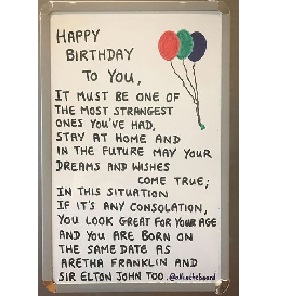 HAPPY
BIRTHDAY
TO YOU,
IT MUST BE ONE OF
THE MOST STRANGEST
ONES YOU'VE HAD,
STAY AT HOME AND
IN THE FUTURE MAY YOUR
DREAMS AND WISHES
COME TRUE;
IN THIS SITUATION
IF IT'S ANY CONSOLATION,
YOU LOOK GREAT FOR YOUR AGE
AND YOU ARE BORN ON
THE SAME DATE AS
ARETHA FRANKLIN AND
SIR ELTON JOHN TOO.